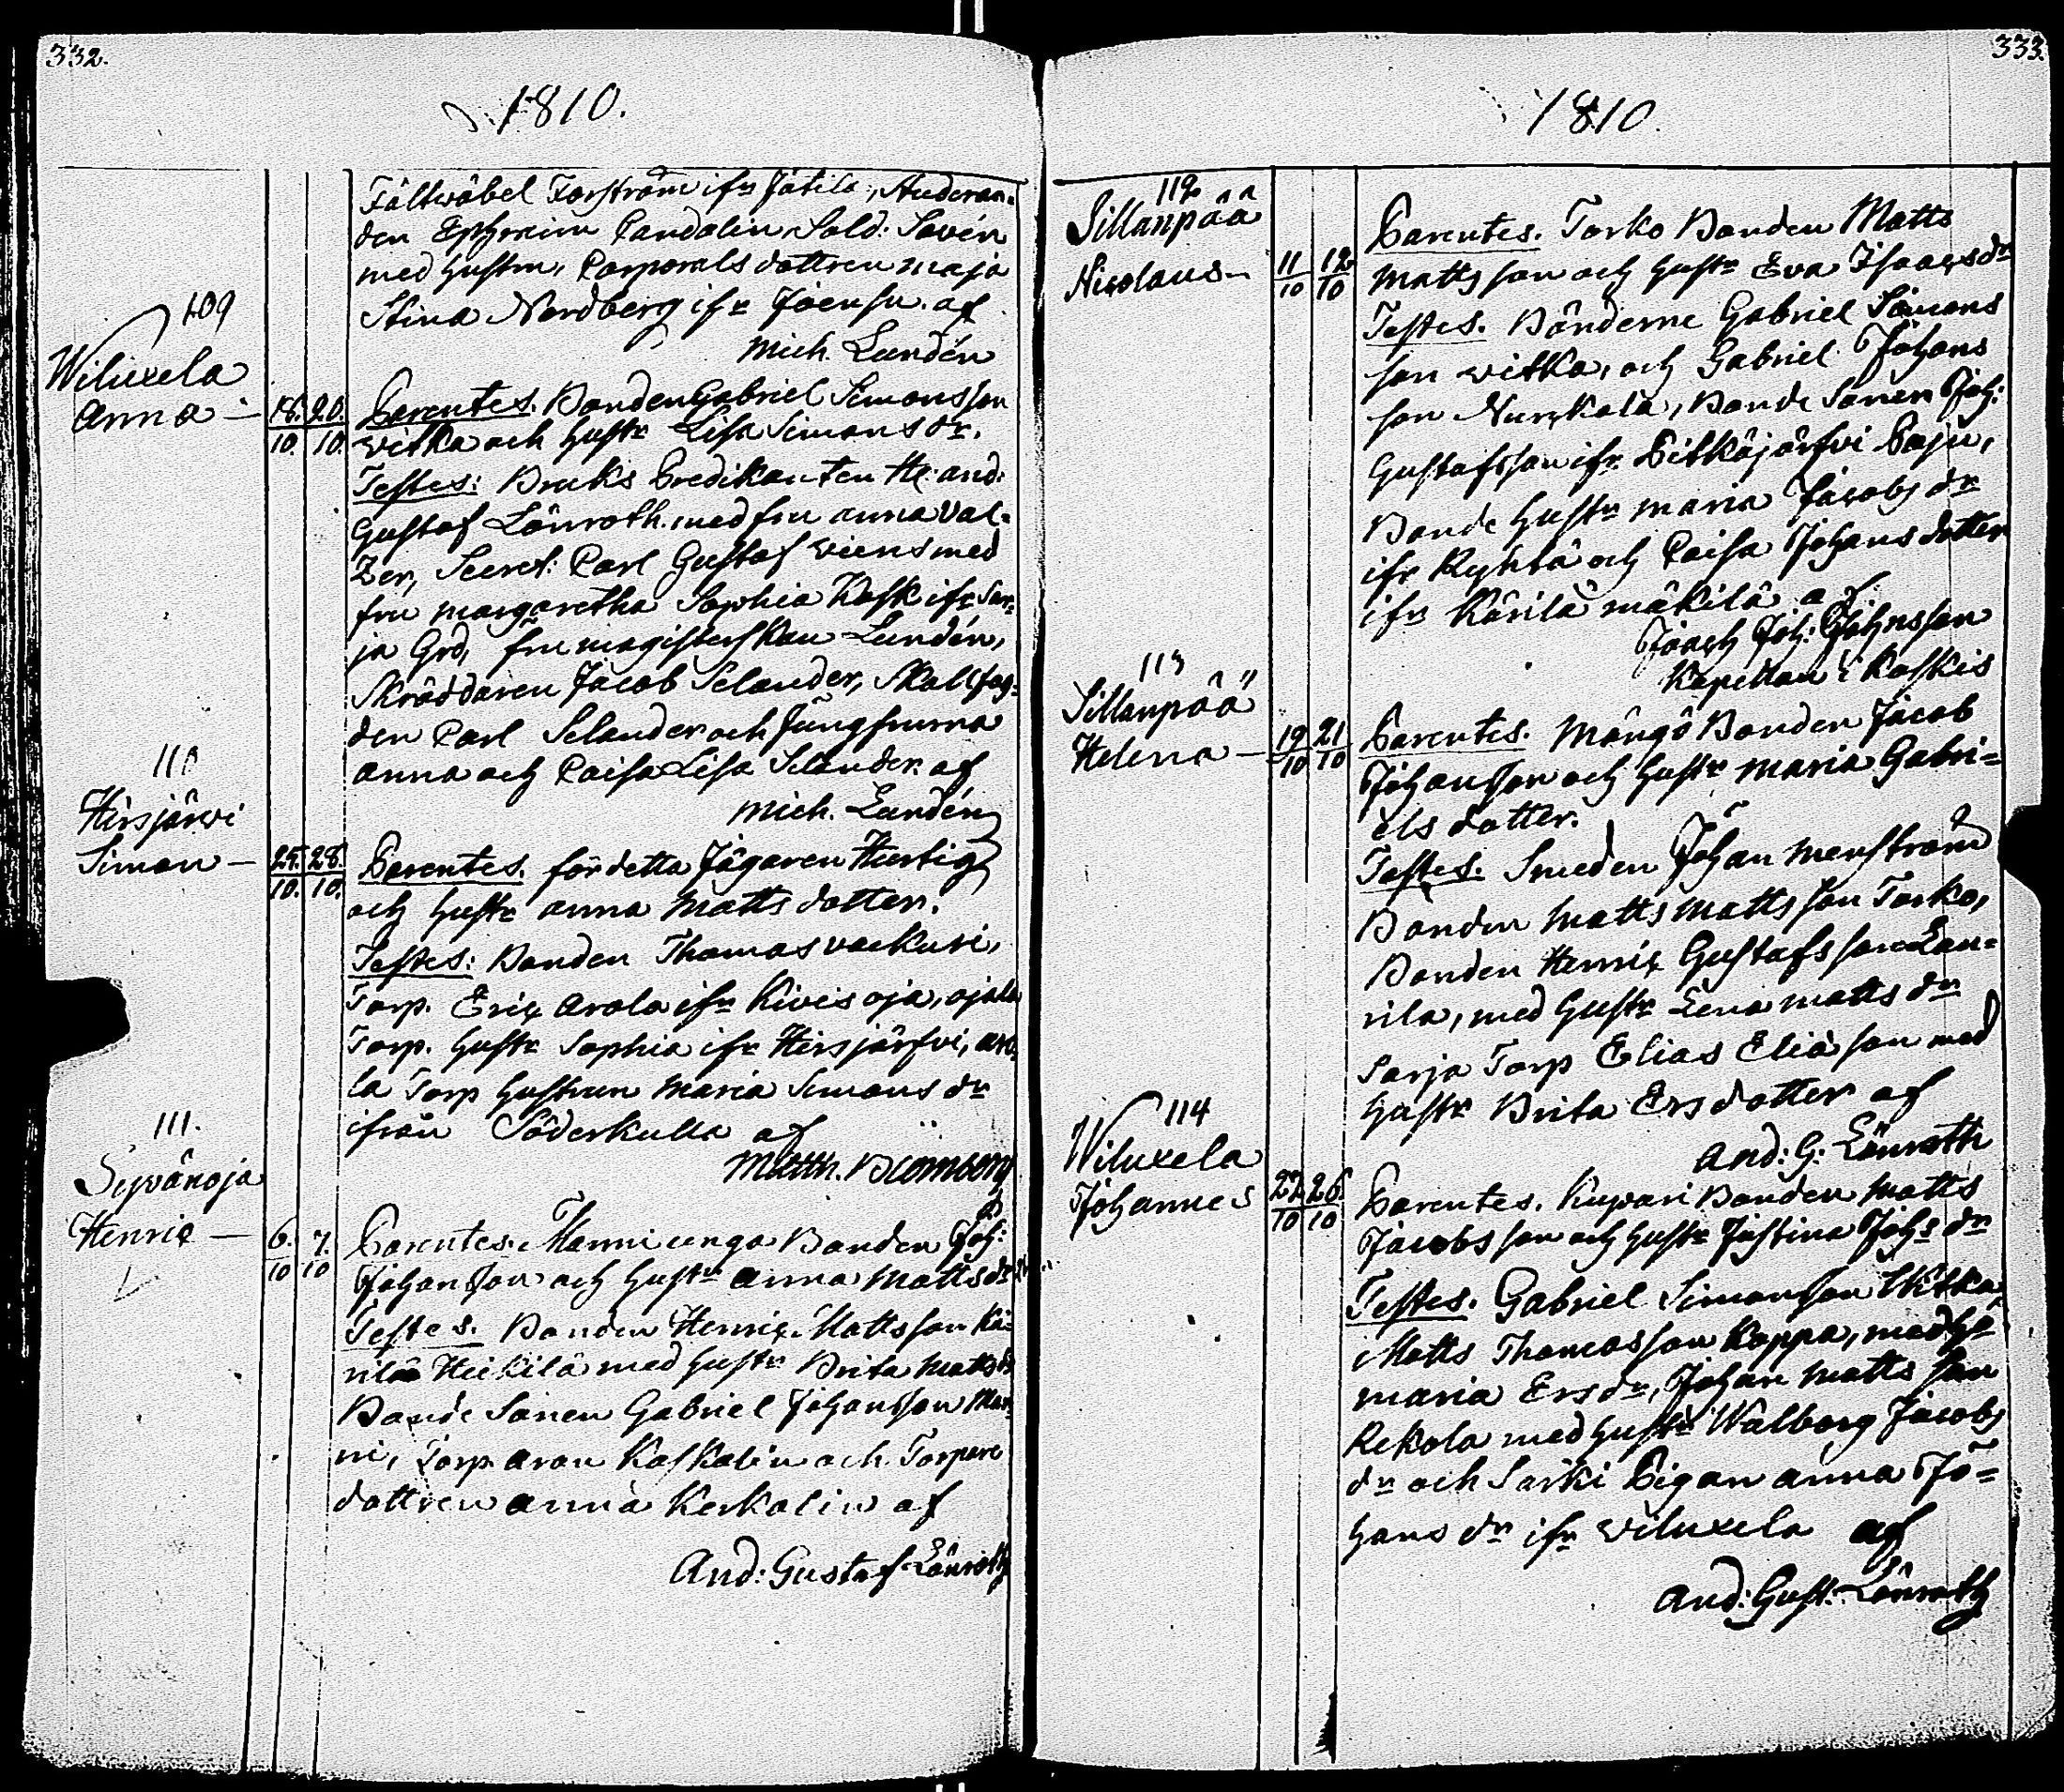 332.
1810.
Fältwäbel Forström ifr Jätila, Studeran-
den Ephraim Candolin Sold: Savén
med hustru, Corporals dottren Maja
Stina Nordberg ifr Joensu. af
Mich. Lundén
109
Wiluxela
Anna –
18. 20. Parentes. Bonden Gabriel Simonsson
10. 10. Witka och hustr Lisa Simons dr.
Testes: Bruks Predikanten Hr And:
Gustaf Lönroth. med fru Anna Val-
zer, Secret: Carl Gustaf Wiens med
fru Margaretha Sophia Kask ifr Sar-
ja Grd, fru magisterskan Lundén,
Skräddaren Jacob Selander, Skallfog-
den Carl Selander och Jungfrurna
Anna och Caisa Lisa Selander. af
Mich. Lundén
110
Hirsjärwi
Simon –
25. 28. Parentes. för detta Jägaren Hurtig
10. 10. och hustr Anna Matts dotter.
Testes: Bonden Thomas
Torp. Eric Arola ifr Kivis oja, ojala
Torp. hustr Sophia ifr Hirsjärfvi, aro-
la Torp hustrun Maria Simons dr
ifrån Söderkulla af
Matth. Blomberg
111.
Syvänoja
Henric –
6. 7. Parentes. Manni unga Bonden Joh:
10 10 Johansson och hustr Anna Matts dr
Testes. Bonden Henric Mattsson Kä-
rilä Heikilä med hustr Brita Matts dr
Bonde Sonen Gabriel Johansson Man-
ni, Torp Aron Kaskalin och Torpare
dottren Anna Keskalin af
And: Gustaf Lönroth
333.
1810.
112
Sillanpää
Nicolaus –
11 12 Parentes. Torko Bonden Matts
10 10 Mattsson och hustr Eva Isaacs dr
Testes. Bönderne Gabriel Simons
son Witka, och Gabriel Johans
son Nurkala, Bonde Sonen Joh:
Gustafsson ifr Pitkäjärfvi Paju,
Bonde hustr Maria Jacobs dr
ifr Ryhtä och Caisa Johans dotter
ifr Kärilä Mäkilä af
Isach Joh: Johnsson
Kapellan i Koskis
113
Sillanpää
Helena –
19 21 Parentes. Mängö Bonden Jacob
10 10 Johansson och hustr Maria Gabri-
els dotter.
Testes. Smeden Johan Menström
Bonden Matts Mattsson Torko,
Bonden Henric Gustafsson Lau-
rila, med hustr Lena Matts dr
Sarja Torp Elias Eliason med
hustr Brita Ersdotter af
And: G: Lönroth
114
Wiluxela
Johannes
22 26. Parentes. Kupari Bonden Matts
10 10 Jacobsson och hustr Justina Johs dr
Testes. Gabriel Simonsson Witka
Matts Thomasson Kappa, med hu
Maria Ersdr, Johan Mattsson
Rekola med hustr Walborg Jacobs
dr och Särki Pigan Anna Jo-
hans dr ifr Wiluxela af
And: Gust: Lönroth